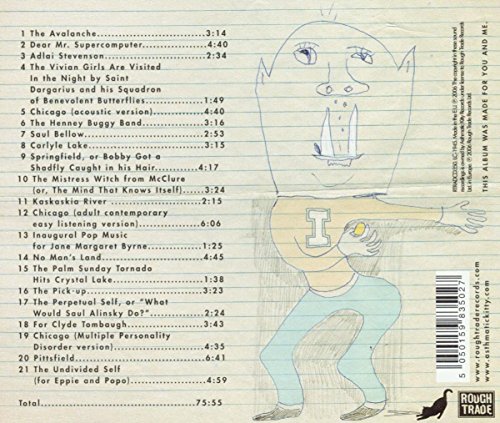 1 The Avalanche 3:14
2 Dear Mr. Supercomputer 4:40
3 Adlai Stevenson 2:34
4 The Vivian Girls Are Visited
In the Night by Saint
Dargarius and his Squadron
of Benevolent Butterflies 1:49
5 Chicago (acoustic version) 4:40
6 The Henney Buggy Band 3:16
7 Saul Bellow 2:53
8 Carlyle Lake 3:15
9 Springfield, or Bobby Got a
Shadfly Caught in his Hair 4:17
10 The Mistress Witch from McClure
(or, The Mind That Knows Itself) 3:24
11 Kaskaskia River 2:15
12 Chicago (adult contemporary
easy listening version) 6:06
13 Inaugural Pop Music
for Jane Margaret Byrne 1:25
14 No Man's Land 4:45
15 The Palm Sunday Tornado
Hits Crystal Lake 1:38
16 The Pick-up 3:23
17 The Perpetual Self, or "What
Would Saul Alinsky Do?" 2:24
18 For Clyde Tombaugh 3:43
19 Chicago (Multiple Personality
Disorder version) 4:35
20 Pittsfield 6:41
21 The Undivided Self
(for Eppie and Popo) 4:59
Total 75:55
I
THIS ALBUM WAS MADE FOR YOU AND ME.
5 050159 835027
www.roughtraderecords.com
www.asthmatickitty.com
ROUGH
TRADE